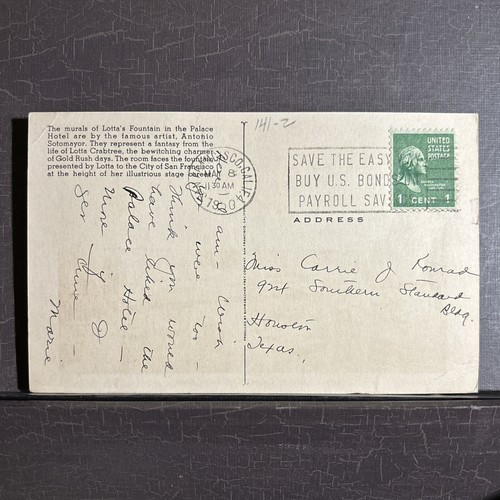 The murals of Lotta's Fountain in the Palace
Hotel are by the famous artist, Antonio
Sotomayor. They represent a fantasy from the
life of Lotta Crabtree, the bewitching charmer
of Gold Rush days. The room faces the fountain
presented by Lotta to the City of San Francisco
at the height of her illustrious stage career.
141-2
MAY 8
11 30 AM
SAVE THE EASY
BUY U.S. BOND
PAYROLL SAV
UNITED
STATES
POSTAGE
1 CENT 1
ADDRESS
Miss Carrie J Konrad
921 Southern Standard
Bldg.
Houston
Texas.
am - Wish
you were
Think you would
have liked the
Palace Hotel -
Marie